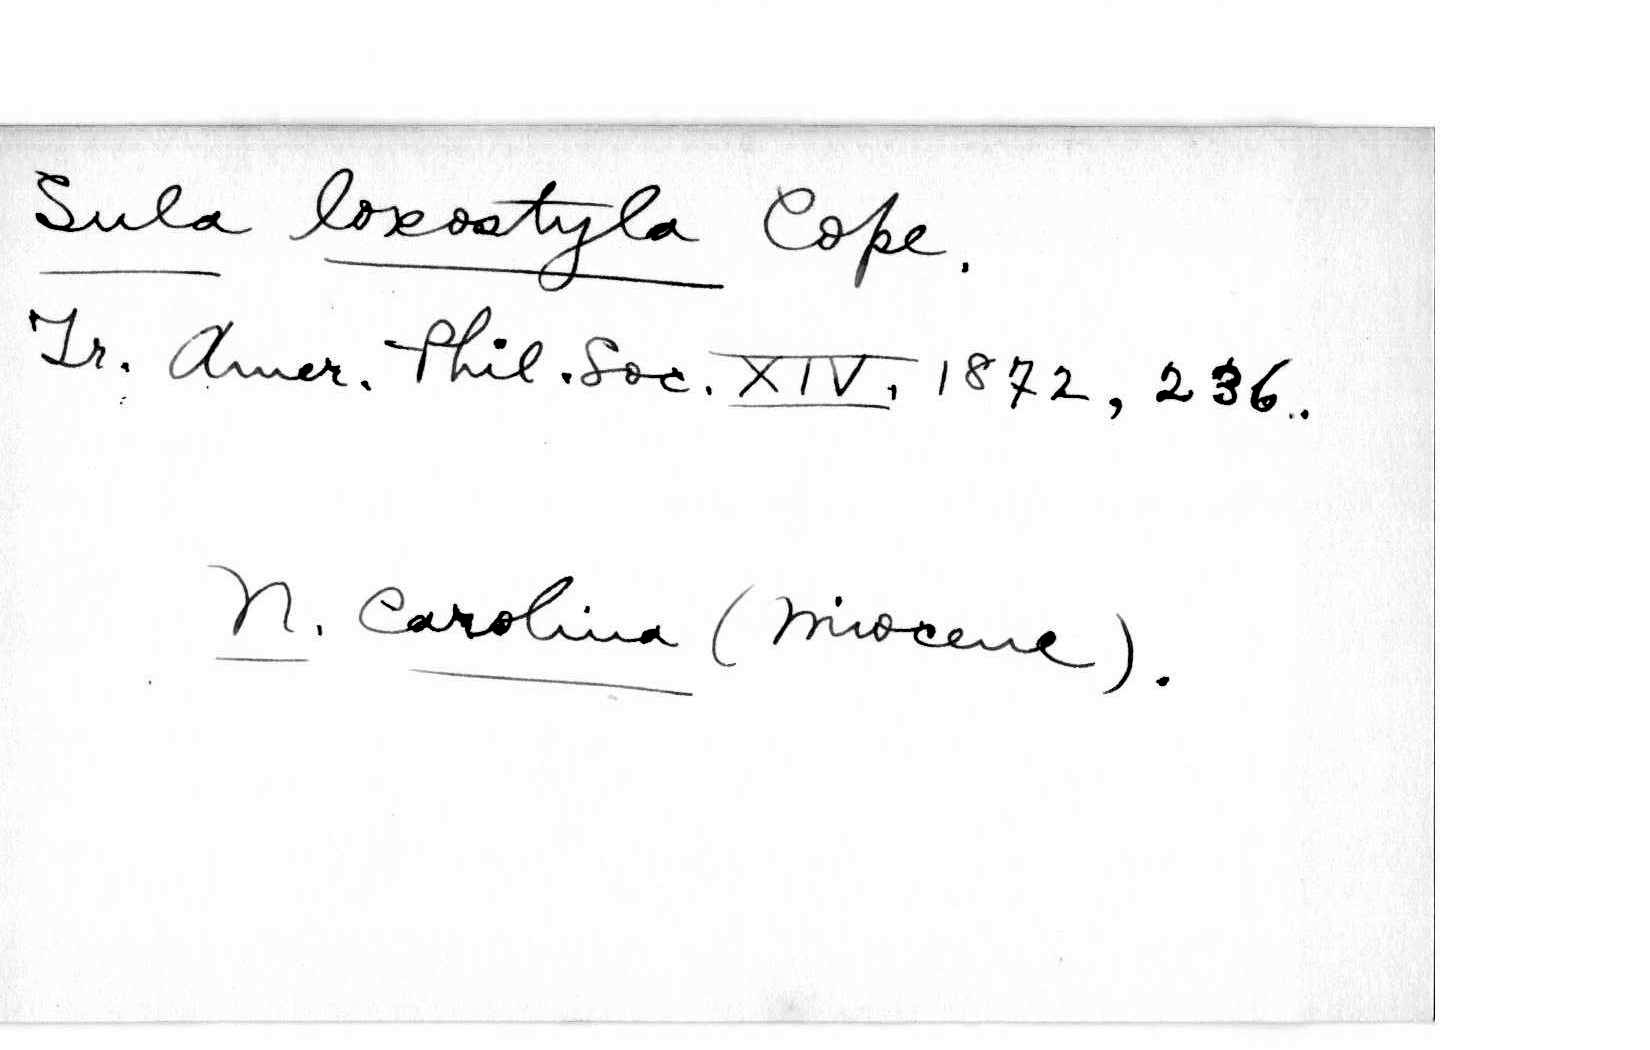 Sula loxostyla Cope.
Tr. Amer. Phil. Soc. XIV, 1872, 236.
N. Carolina (Miocene).